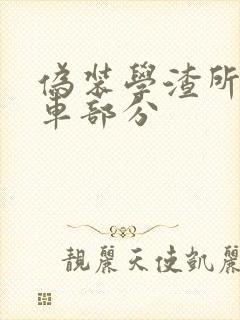 偽裝學渣所
車部分
靚麗天使凱麗